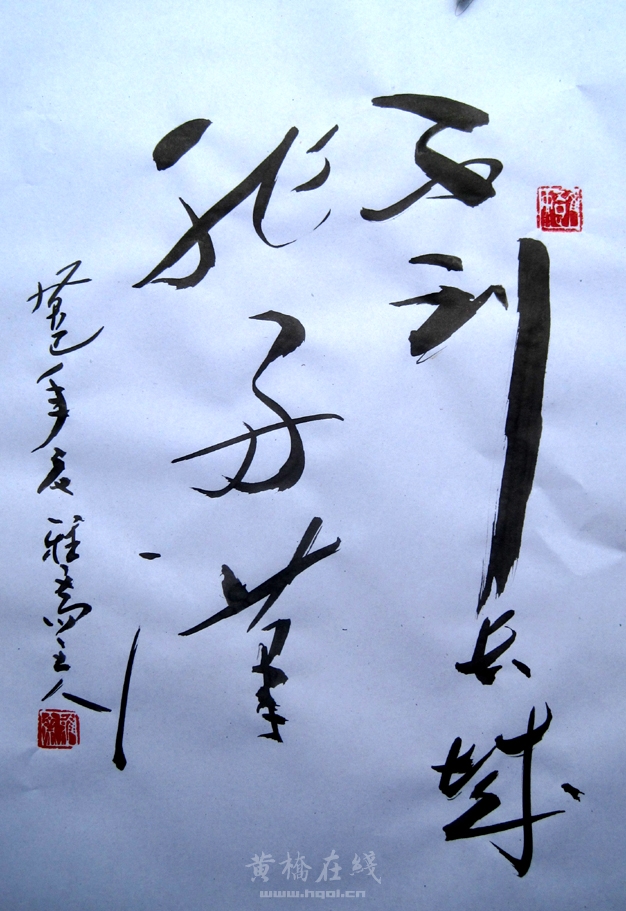 不到长城
非好汉
癸巳年夏雅斋主人
黄橋在綫
www.hqol.cn